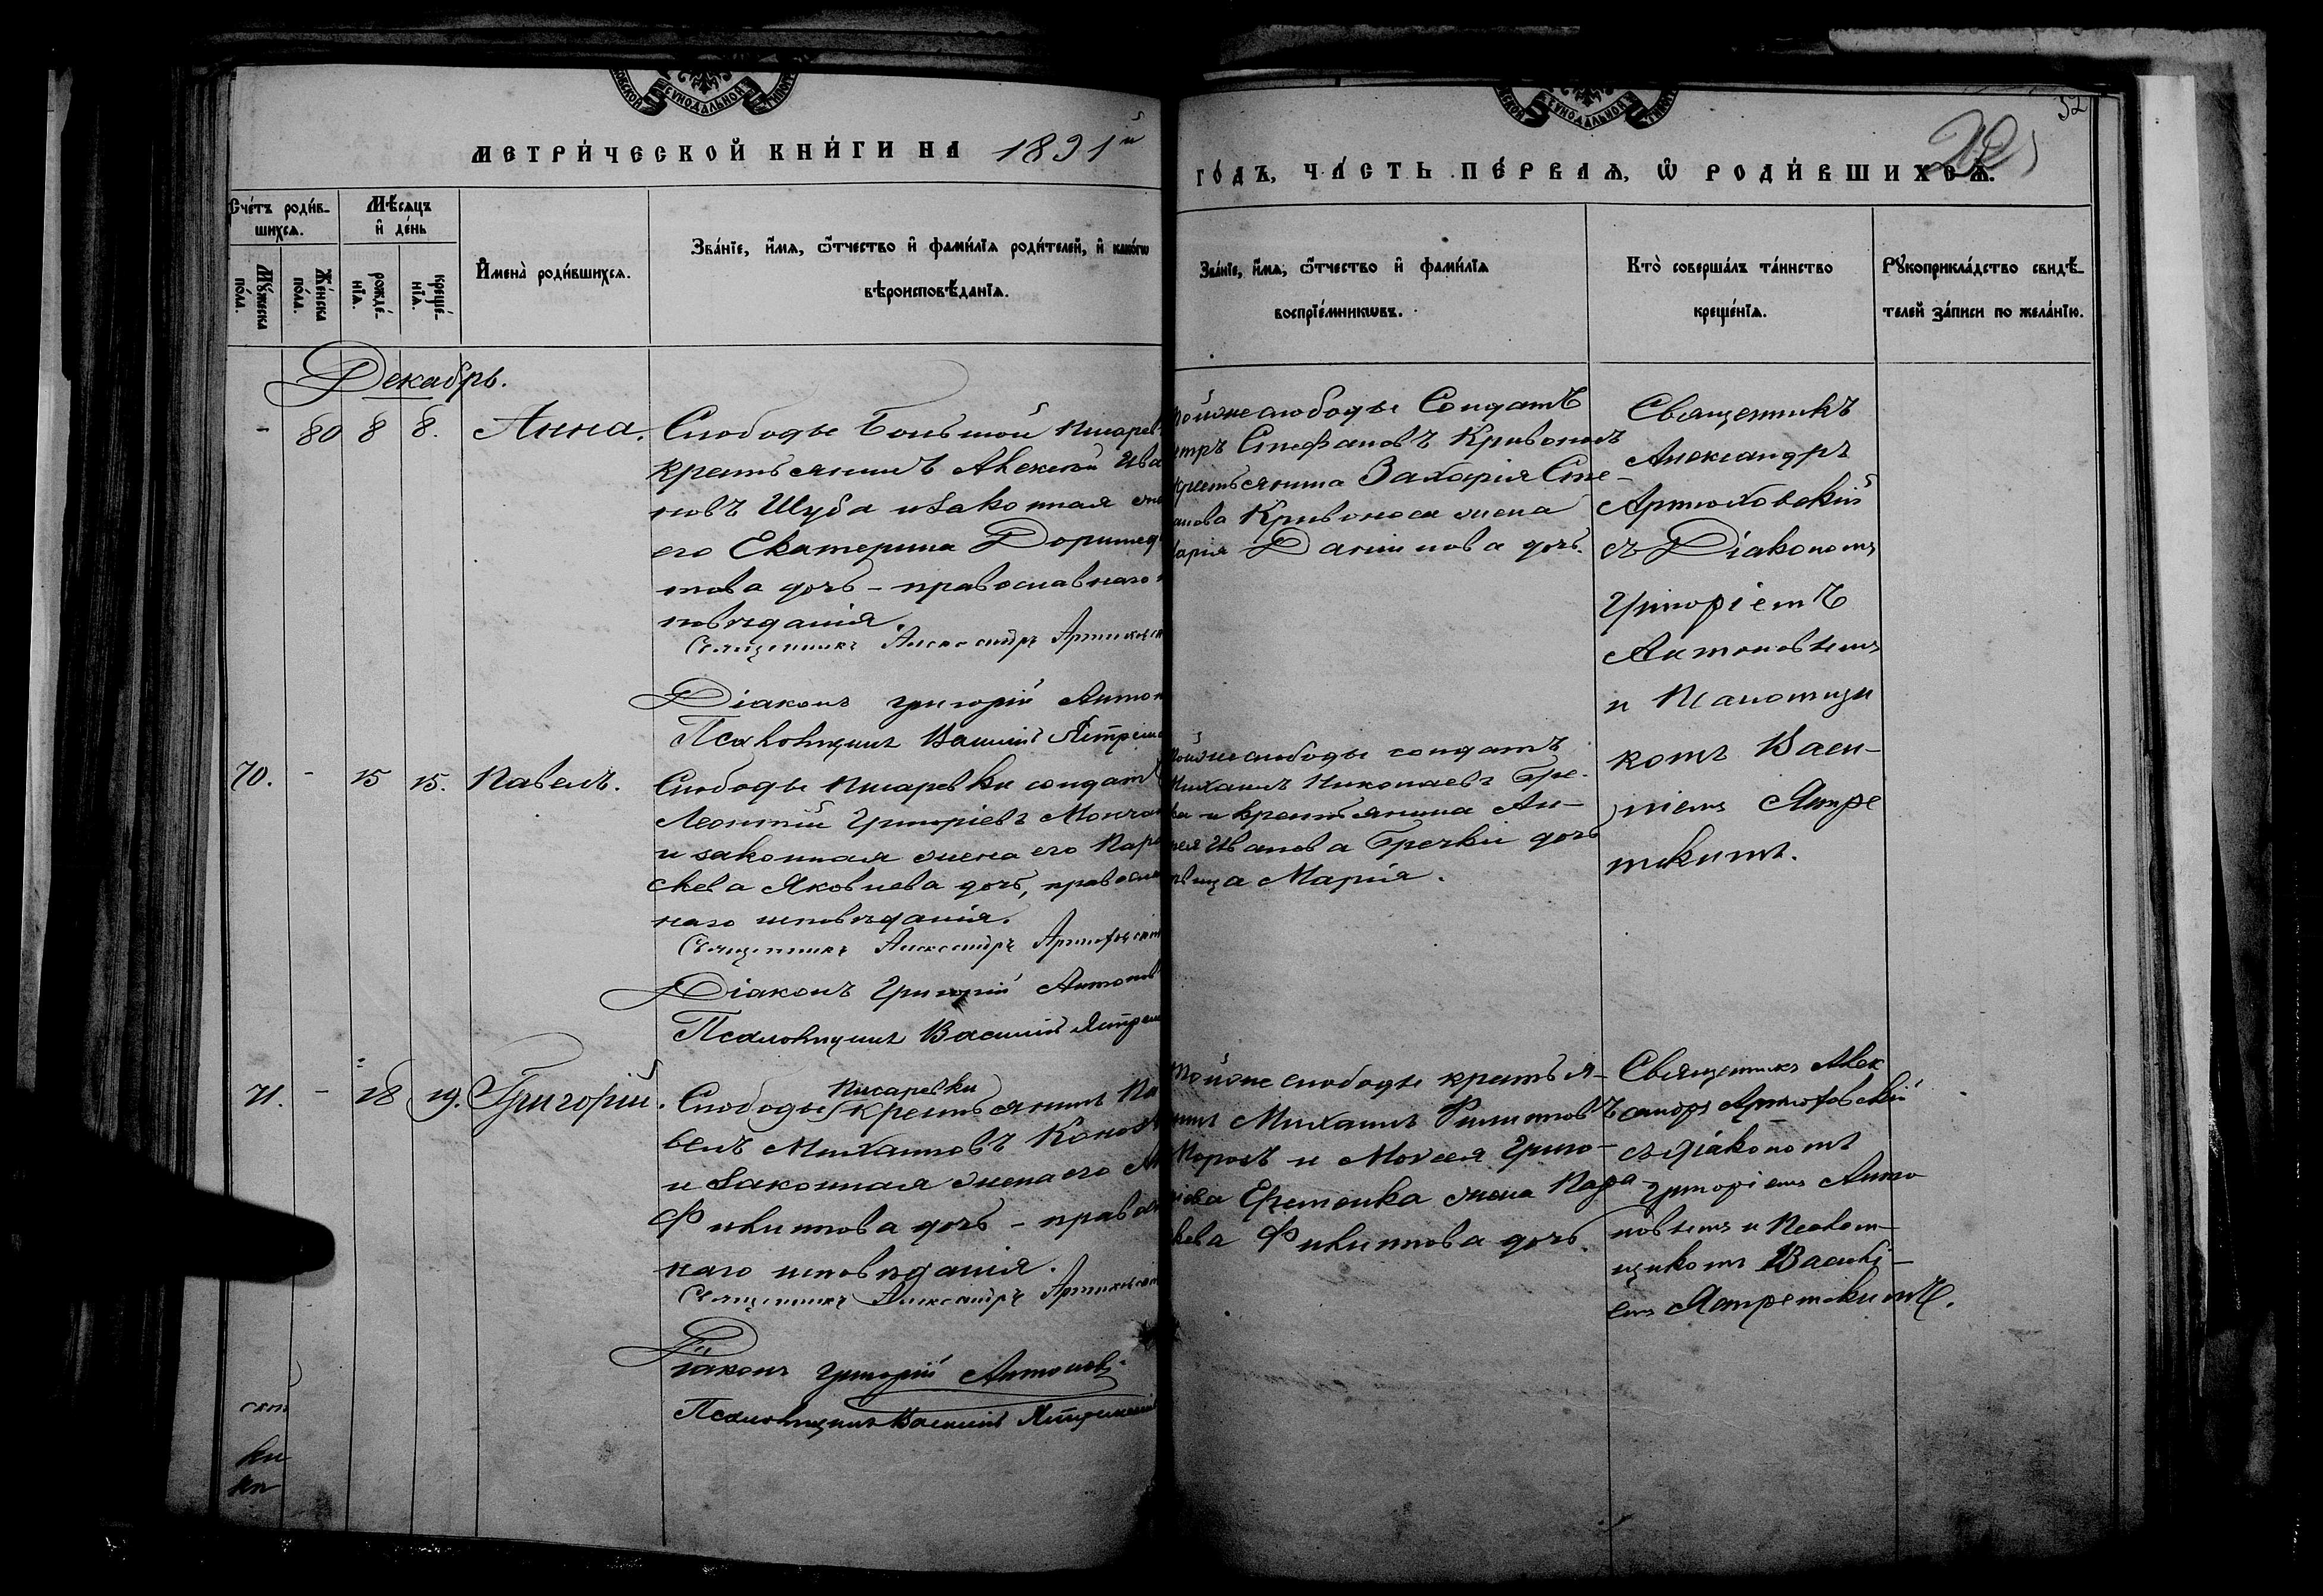 СѴНОДАЛЬНОЙ
СѴНОДАЛЬНОЙ
32
МЕТРИ́ЧЕСКОЙ КНИ́ГИ НА 1891й
ГО́ДЪ, ЧА́СТЬ ПЕ́РВАѦ, Ѡ РОДИ́ВШИХСѦ.
Сче́тъ роди́в-
шихсѧ.
Мѣ́сѧцъ
и де́нь
Мꙋ́жеска
по́ла.
Же́нска
по́ла.
рожде́-
нїѧ.
креще́-
нїѧ.
Имена̀ роди́вшихсѧ.
Зва́нїе, и́мѧ, ѻ҆́тчество и фами́лїѧ роди́телей, и како́гѡ
вѣроисповѣ́данїѧ.
Зва́нїе, и́мѧ, ѻ҆́тчество и фами́лїѧ
воспрїе́мникѡвъ.
Кто̀ соверша́лъ та́инство
креще́нїѧ.
Рꙋкоприкла́дство свидѣ́-
телей за́писи по жела́нїю.
Декабрь.
- 80 8 8. Анна.
Слободы Большой Писарев
крестьянинъ Алексей Ива
новъ Шуба и законная же
его Екатерина Доримед
това дочь - православнаго
повѣданія.
Священникъ Александръ Артюховск
Діаконъ Григорій Антон
Псаломщикъ Василій Ястрем
тойже слободы Солдатъ
етръ Стефановъ Кривоносъ
крестьянина Захарія Сте-
анова Кривоноса жена
арія Даніилова дочь.
Священникъ
Александръ
Артюховскій
съ Діакономъ
Григоріемъ
Антоновымъ
и Псаломщи
комъ Васи-
ліемъ Ястре
мскимъ.
70. - 15 15. Павелъ.
Слободы Писаревки солдатъ
Леонтій Григоріевъ Молча
и законная жена его Пара
скева Яковлева дочь, правосла
наго исповѣданія.
Священникъ Александръ Артюховскій
Діаконъ Григорій Антонов
Псаломщикъ Василій Ястрем
тойже слободы солдатъ
Михаилъ Николаевъ Гре-
ка и крестьянина Ан-
рея Иванова Гречки дочь
вица Марія.
71. - 18 19. Григорій.
Писаревки
Слободы крестьянинъ Па
велъ Михаиловъ Коно
и законная жена его
Филиппова дочь - правос
наго исповѣданія.
Священникъ Александръ Артюховскій
Діаконъ Григорій Антоновъ
Псаломщикъ Василій Ястремскій
тойже слободы крестья-
нинъ Михаилъ Филипповъ
Морозъ и Моисея Григо-
ріева Ефеменка жена Пара
кева Филиппова дочь.
Священникъ Алек
сандръ Артюховскій
съ діакономъ
Григоріемъ Анто
новымъ и Псалом-
щикомъ Василі-
емъ Ястремскимъ.
ки